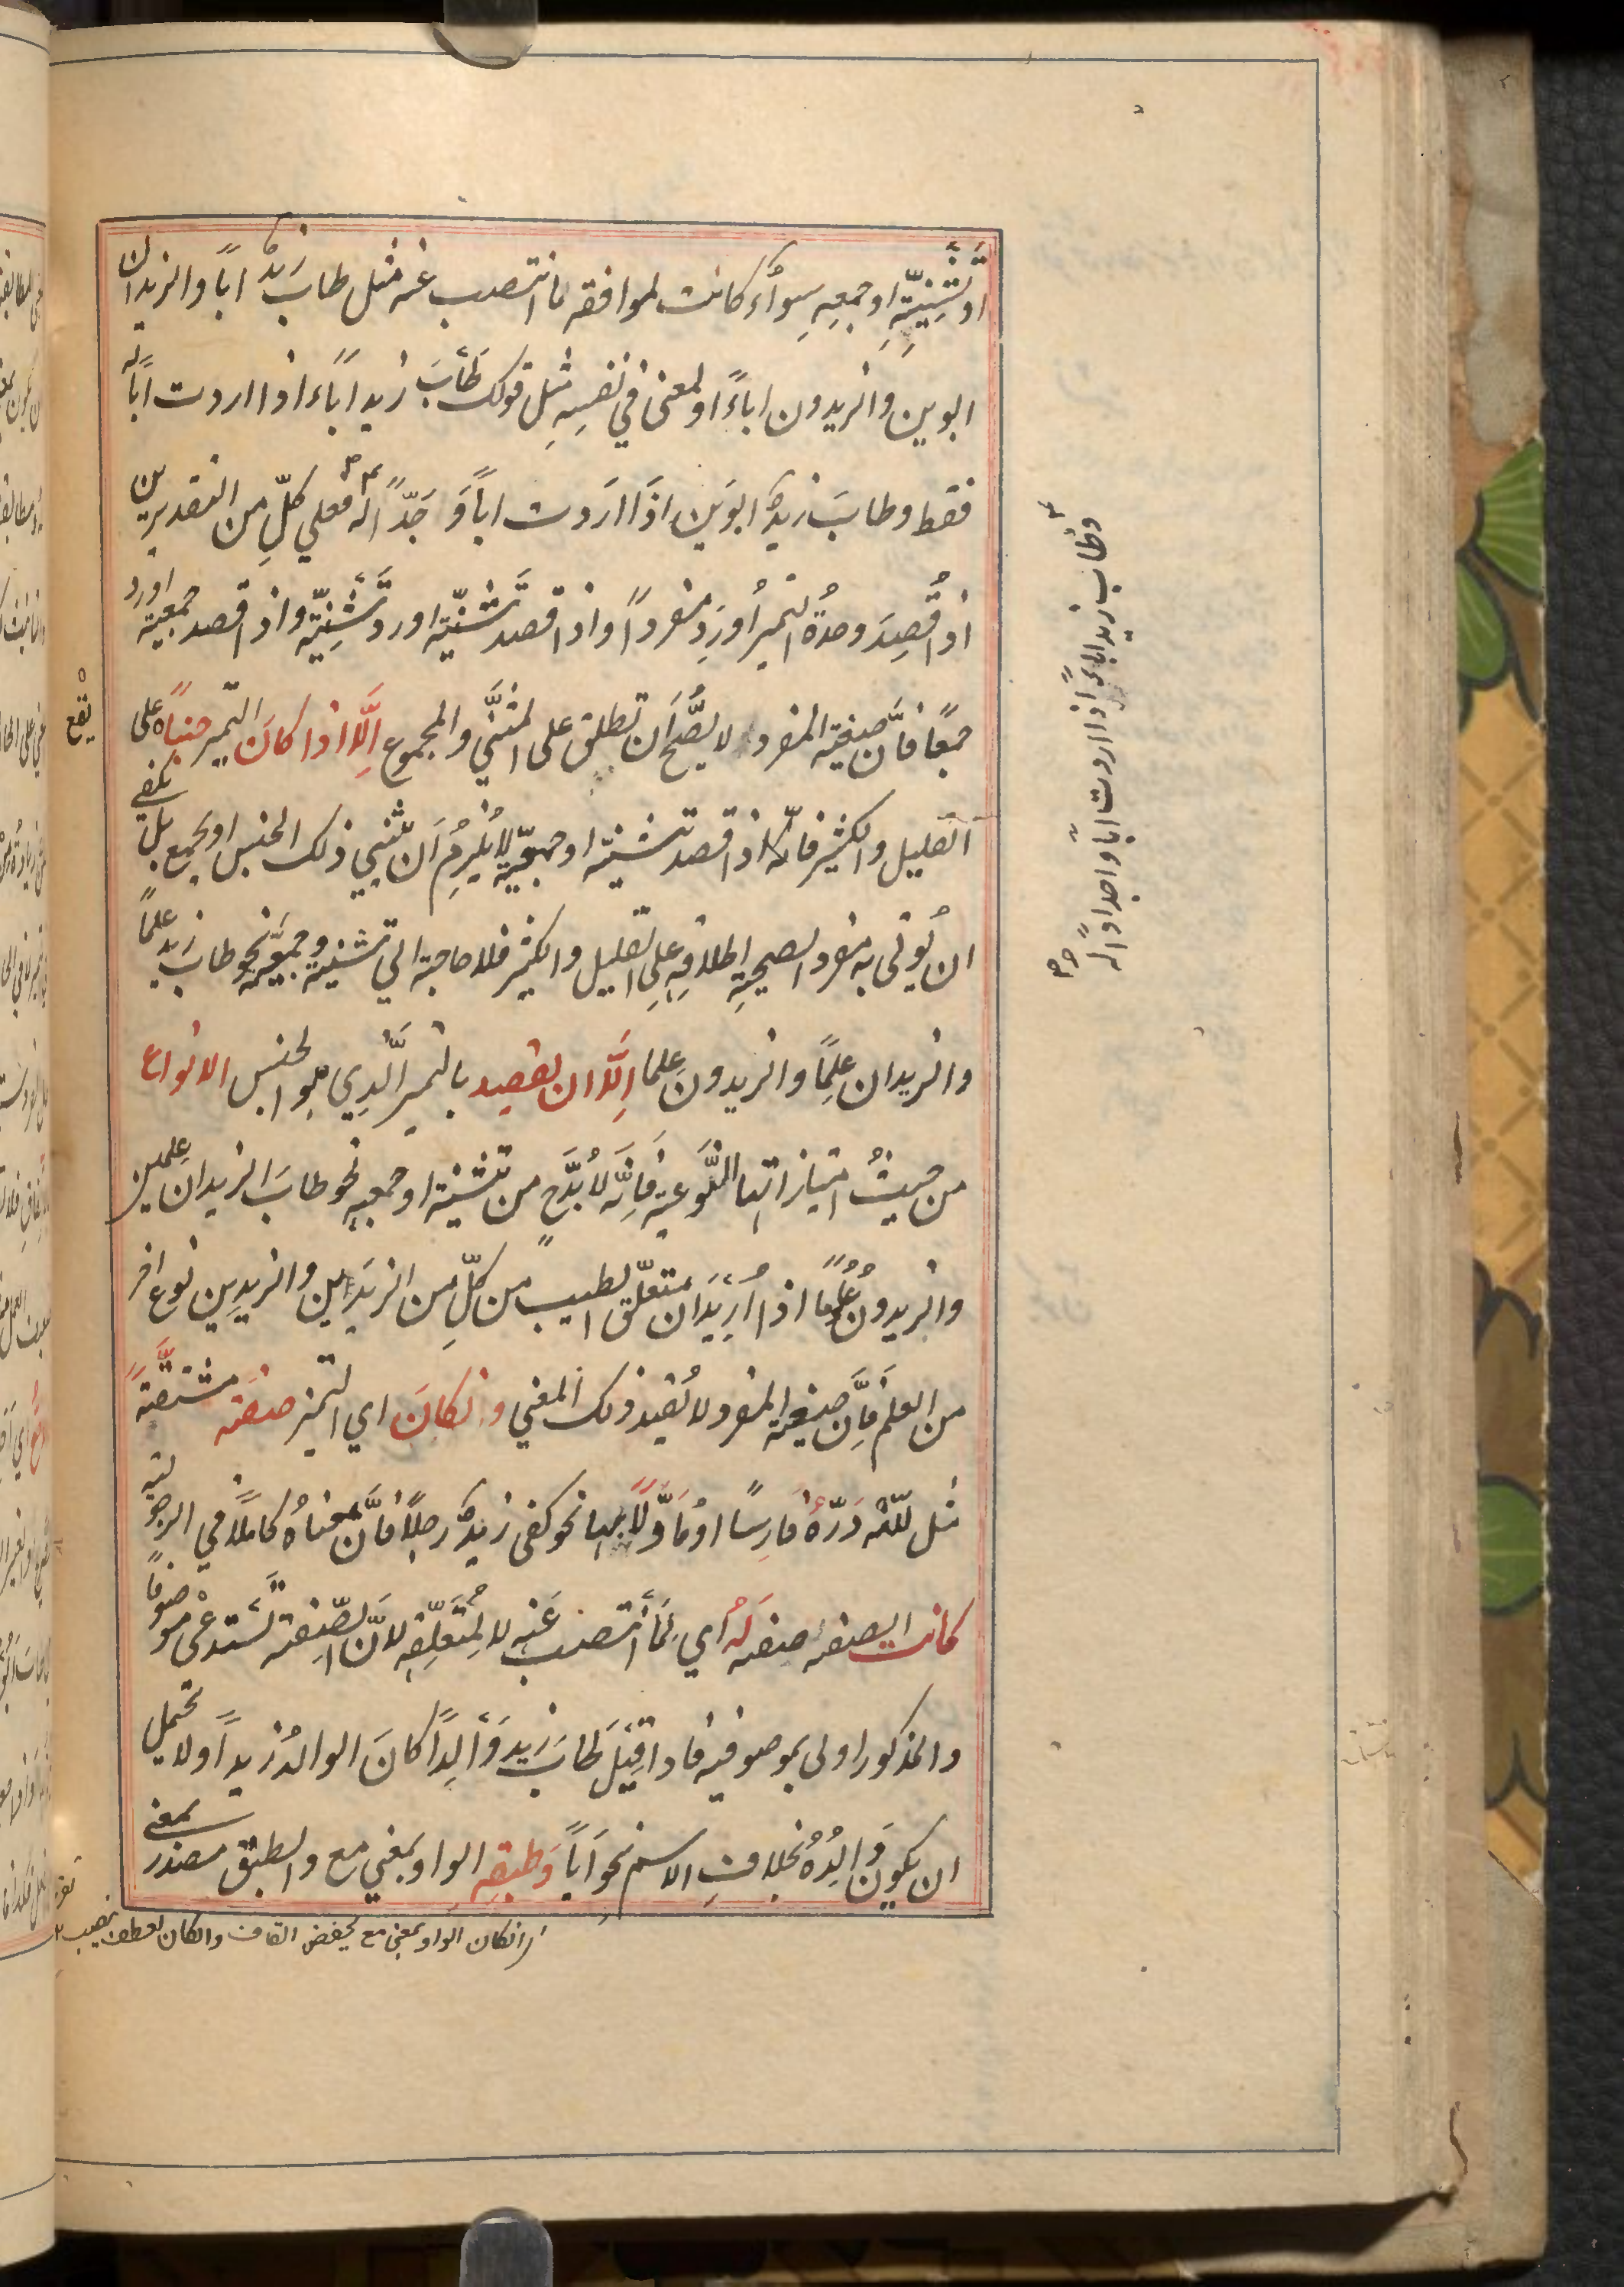 او تثنيّته او جمعه سواء كانت لموافقه ما انتصب عنه مثل طاب زيدٌ اباً والزيدان
ابوين والزيدون اباءً او لمعنى في نفسِهِ مثل قولك طابَ زيد اباء اذا اردت اباً له
فقط وطابَ زيدٌ ابوَين اذَا ارَدت اباً وَ جَدّاً له فعلي كلِّ من التقديرين
اذا قُصِدَ وحدةُ التميز اُورِدَ مفرداً واذا قصد تثنيّته اورد تثنِيّته واذا قصد جمعيته اورد
جمعًا فاَنَّ صيغة المفرد لا يصُّحَ اَن تطلق على المثنَّى والمجموع اِلَّا اذا كانَ التميز جنساً يقع على
القليل والكثير فانّه اذا قصد تثنيته او جمعيّته لا يُلزِمُ اَن يثنّي ذلك الجنس او يجمع بل يكفي
ان يُوتى به مفرد لصحيحةِ اطلاقِهِ علِى القليل والكثير فلا حاجة الي تثنيته وجمعيَّته نحو طابَ زيد علمًا
والزيدان علِمًا والزيدونَ عِلما اِلَّا ان يقصد بالتميز الَّذِي هو الجنس الانواع
من حيثُ امتيازاتها النَّوعية فَاِنَّه لا بُدَّ ح من تثنيته او جمعيه نحو طابَ الزيدانِ علِمين
والزيدونَ علُومًا اذا اُرِيَدَ انّ متعلّق الطيب من كلِّ من الزيدَين والزيدِين نوع اخر
من العلم فاِنَّ صيغة المفرد لا يُفيد ذلك المعني وانكانَ اي التميز صفة مشتقَّةً
مثل للّٰه دَرّهُ فارِسًا او مَأوَّلًا بها نحو كفى زيدٌ رجلًا فاَنَّ معناهُ كاملًا في الرجولية
كانت الصفة صفة لَهُ اي لِمَا انتصب عَنه لا لمُتَعَلِّقِه لانَّ الصِّفة تَستدعى موصوفًا
والمذكور اولى بموصوفية فاذا قِيَلَ طابَ زيد وَالِدًا كانَ الوالدُ زيداً ولا يحتمل
ان يكون وَالِدُهُ بخلافِ الاسم نحو اَباً وَطبقه الواو بمعني مع والطبق مصدر بمعنى
انكان الواو بمعنى مع يخفض القاف وانكان لعطف ينصب
وطاب زيد اباءً اذا اردت اباً واجداداً له